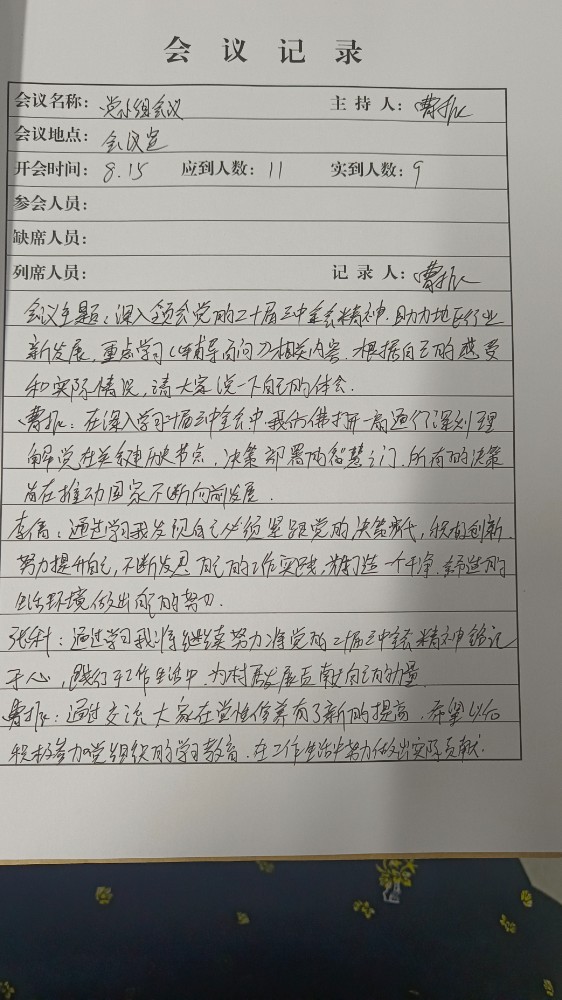 会议记录
会议名称：党小组会议 主持人：曹振
会议地点：会议室
开会时间：8.15 应到人数：11 实到人数：9
参会人员：
缺席人员：
列席人员： 记录人：曹振
会议主题：深入领会党的二十届三中全会精神，助力地区行业
新发展，重点学习《辅导百问》相关内容，根据自己的感受
和实际情况，请大家说一下自己的体会.
曹振：在深入学习十届三中全会中，我仿佛打开一扇通行深刻理
解党在关键历史节点，决策部署的智慧之门，所有的决策
旨在推动国家不断向前发展.
李倩：通过学习我发现自己必须紧跟党的决策，积极创新
努力提升自己，不断反思自己的工作实践，为打造一个干净，舒适的
生活环境做出自己的努力.
张彬：通过学习我将继续努力将党的二十届三中全会精神铭记
于心，践行于工作生活中，为村居发展贡献自己的力量
曹振：通过交流大家在党性修养有了新的提高，希望以后
积极参加党组织的学习教育，在工作生活中努力做出实际贡献.